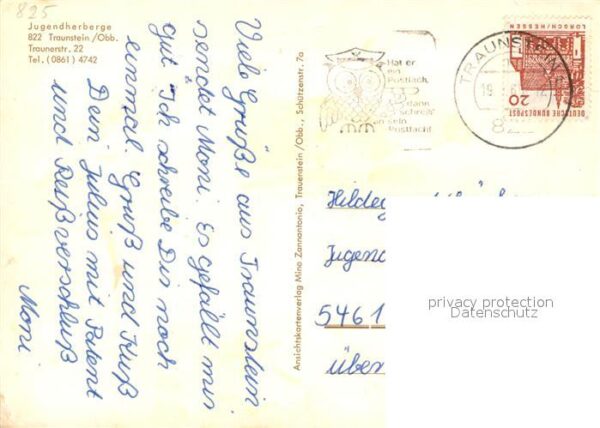 825
Jugendherberge
822 Traunstein/Obb.
Traunerstr. 22
Tel. (0861) 4742
Viele Grüße aus Traunstein
sendet Moni. Es gefällt mir
gut. Ich schreibe Dir noch
einmal. Gruß und Kuß
Dein Julius mit Patent
und Reißverschluß
Moni
Ansichtskartenverlag Mino Zannantonio, Trauenstein/Obb., Schützenstr. 7a
Hat er
ein
Postfach,
dann
schreib'
sein
Postfach!
TRAUNSTEIN
19
82
LORSCH/HESSEN
20
DEUTSCHE BUNDESPOST
Hildeg
Jugen
5461
über
privacy protection
Datenschutz